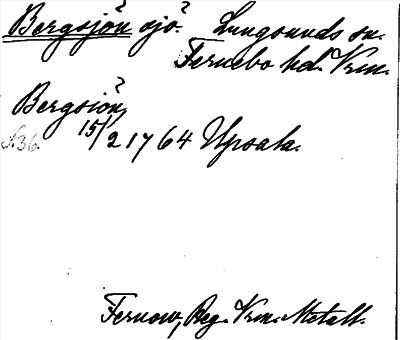 Bergsjön? sjö? Lungsunds sn.
Fernebo hd. Vrm.
Bergsiön?
s. 36. 15/2 1764 Upsala.
Fernow, Beg. Vrm. Metall.